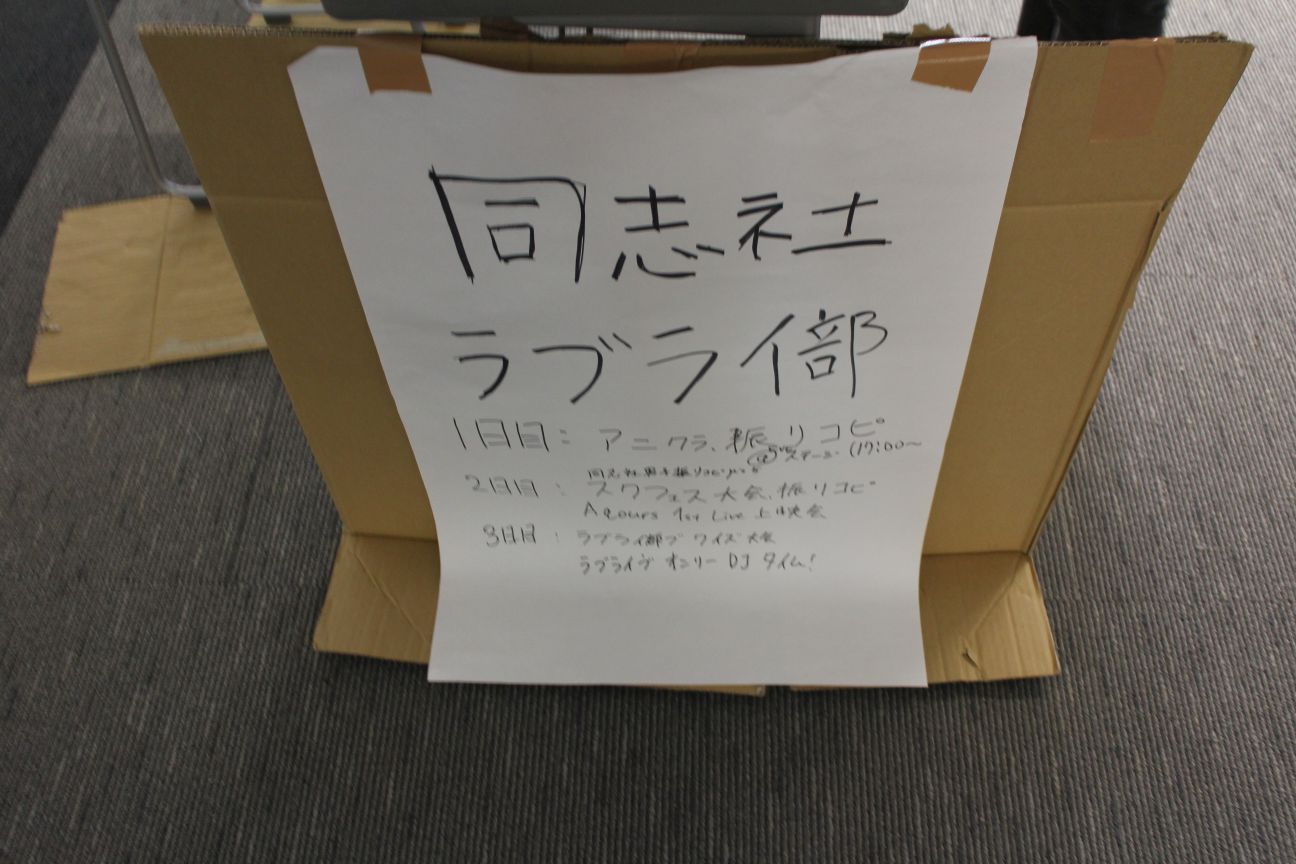 同志社
ラブライ部
1日目: アニクラ、振りコピ
ステージ (17:00~
同志社男子振りコピ
2日目 : スクフェス大会、振りコピ
Aqours 1st Live 上映会
3日目 : ラブライ部 クイズ大会
ラブライブオンリー DJ タイム!